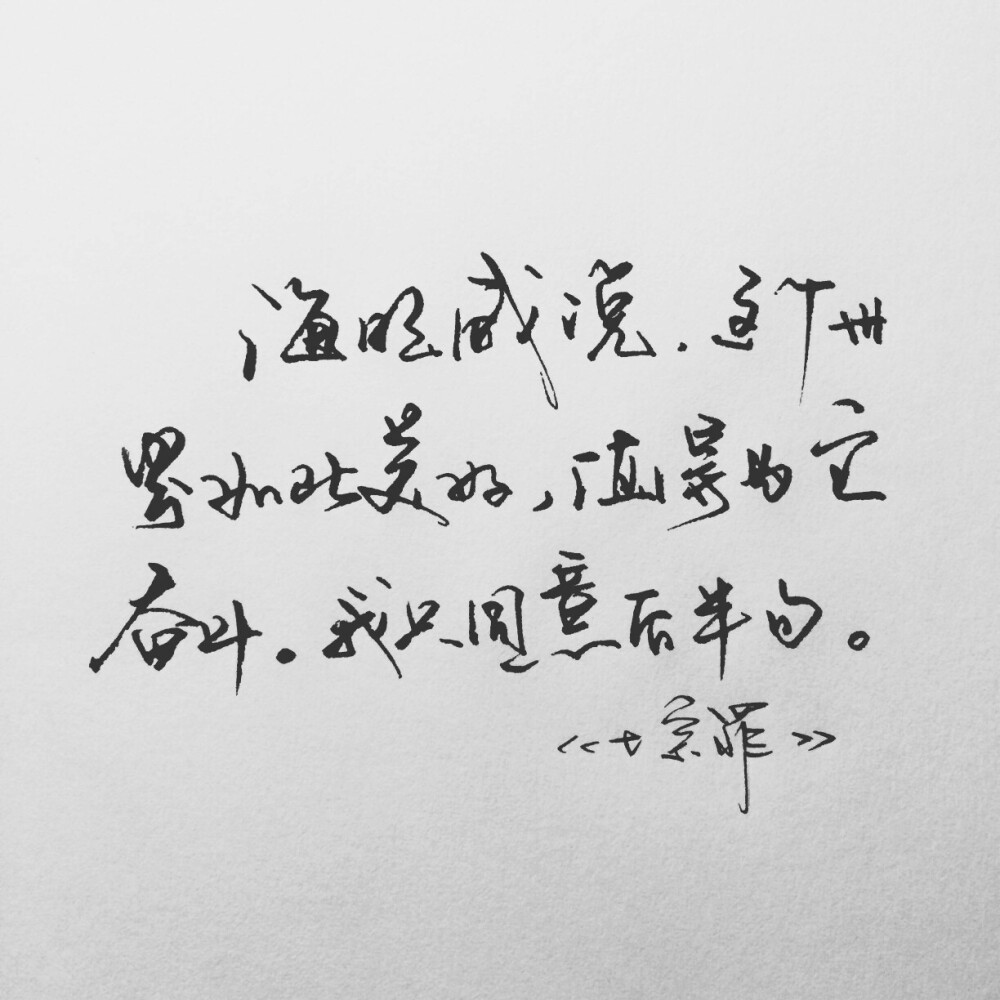 海明威说.这个世
界如此美好,值得为它
奋斗。我只同意后半句。
《七宗罪》